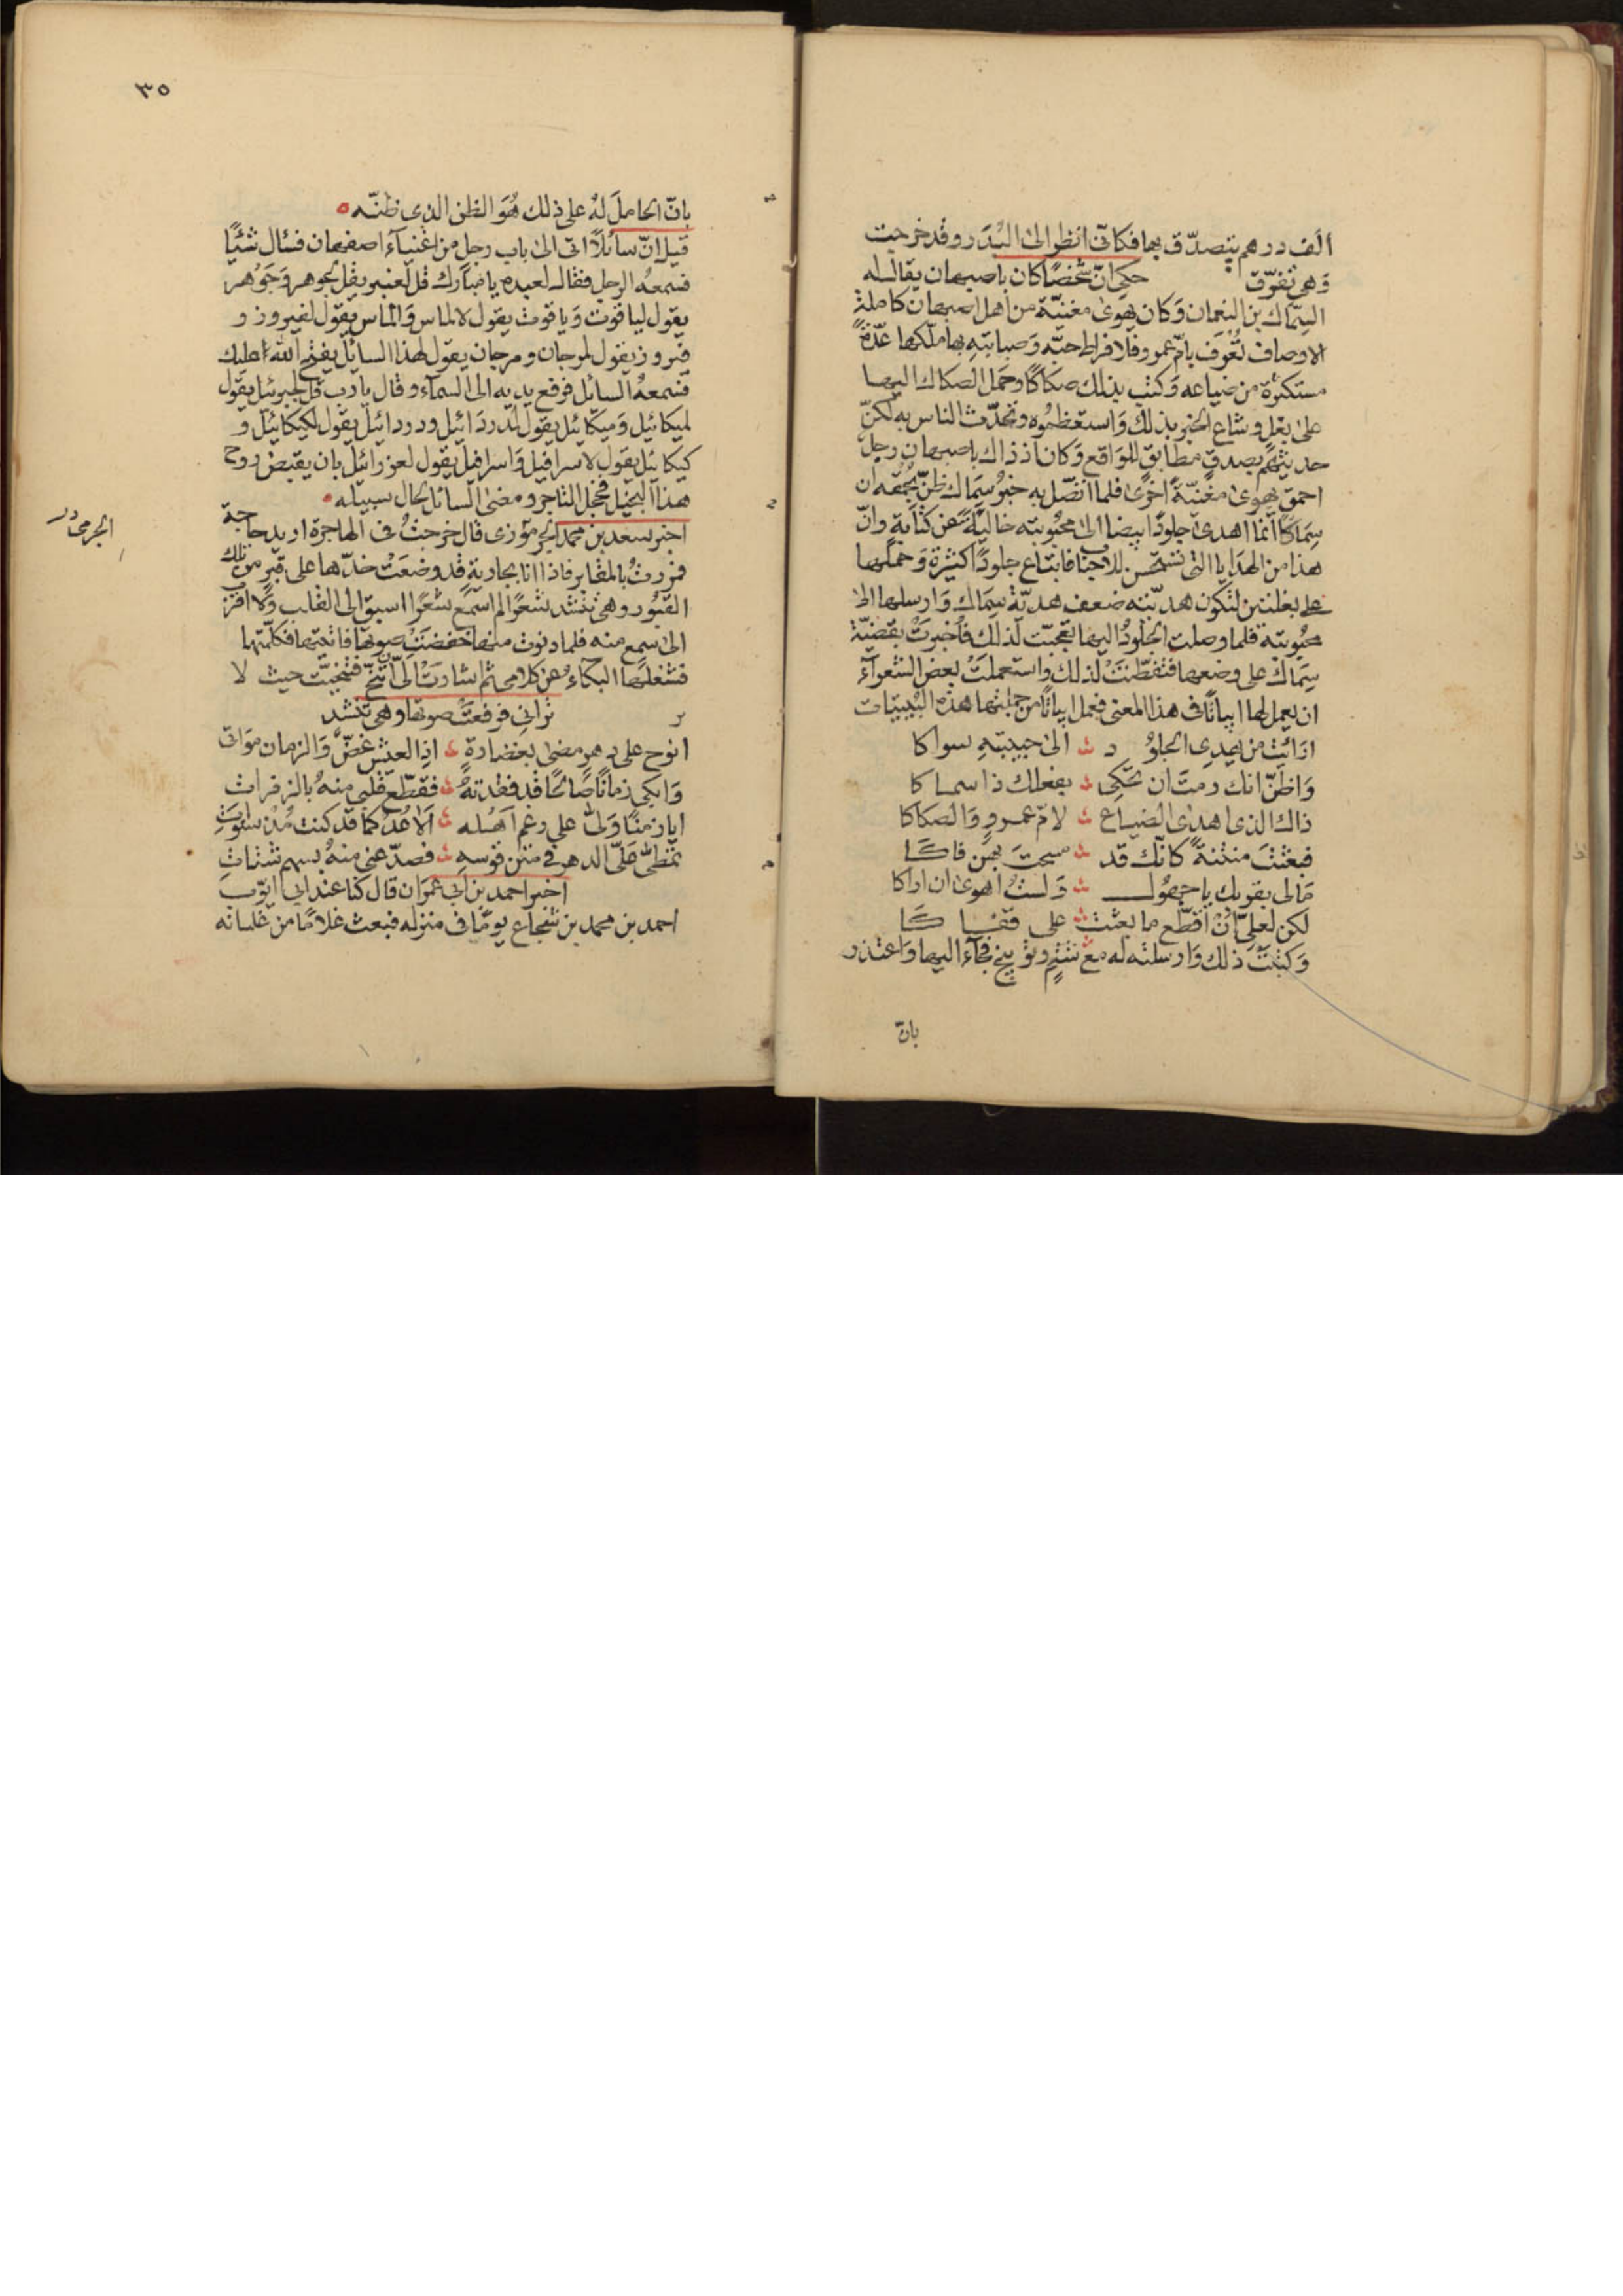 ألف درهم يتصدّق بها فكانّى انظر الى البدَر وقد خرجت
وَهى تفرّق حكى انّ شخصًا كان باصبهان يقال له
السِّماك بن النعمان وَكان يهوى مغنيّة من اهل اصبهان كاملة
الاوصاف تُعْرَف بامّ عمرو فلافراط حبّه وَصبابتهِ بها ملّكها عدّة
مستكثرة من ضياعه وَكتب بذلك صكاكًا وحمل الصكاك اليها
على بغل وشاع الخبر بذلك وَاستعظمُوه وتحدّث الناس به لكنّ
حديثهُم بصدقٍ مطابق للوَاقع وَكان اذ ذاك باصبهان رجل
احمق يهوى مغنيّة اخرى فلما اتصّل به خبرُ سِمَاك ظنّ بحُمقه ان
سِمَاكًا انّما اهدى جلودًا بيضا الى محبُوبته خاليَة عن كتابة وانّ
هذا من الهدَايا التى تستحسن للاحباب فابتاع جلودًا كثيرة وَحملها
على بغلتين لتكون هديّته ضعف هديّة سِمَاك وَارسلها الى
محبُوبته فلما وصلت الجلودُ اليها تعجّبت لذلك فاُخبرَت بقضيّة
سِمَاك على وضعها فتفطّنتْ لذلك واستعملتْ بعض الشعرآء
ان يعمل لها ابياتًا فى هذا المعنى فعمل ابياتًا من جملتها هذه البُييتات
ارَأيت من يهدى الجلوُ د ؞ الى حبيبتهِ سواكا
وَاظنّ انك رمتَ ان تحكى ؞ بفعلك ذا سماكا
ذاك الذى اهدى الضياع ؞ لامّ عمرو وَالصكاكا
فبعثتَ منتنةً كانّك قد ؞ مسحتَ بهنّ فاكَا
مَالى بقربك يا جهُول ؞ وَلستُ اهوى ان اراكا
لكن لَعلىّ انْ اقطّع ما بعثت ؞ على قفاكَا
وَكتبتْ ذلك وَارسلته له مع شتمٍ وتوبيخ فجآء اليها وَاعتذر
بانّ
٣٥
بانّ الحاملَ لهُ على ذلك هُوَ الظن الذى ظنّه ه
قيل انّ سآئلاً اتى الى باب رجل من اغنيآء اصفهان فسئال شئيًا
فسمعهُ الرجل فقال لعبده يا مبَارك قل لعنبر يقل لجوهر وَجَوْهر
يقول لياقوت وَياقوت يقول لالماس وَالماس يقول لفيروز و
فيروز يقول لمرجان ومرجان يقول لهذا السايل يفتح الله عليك
فسمعهُ السائل فرفع يديه الى السمآء وقال يا رب قل لجبرئيل يقول
لميكائيل وَميكائيل يقول لدردَائيل ودردائيل يقول لكيكائيل و
كيكائيل يقول لاسرافيل وَاسرافيل يقول لعزرائيل بان يقبض روح
هذا البخيل فخجل التاجر ومضى السائل لحال سبيله ه
اخبر سعد بن محمد الجرموزى قال خرجتُ فى الهاجرة اريد حاجة
الجرمى
فمررتُ بالمقابر فاذا انا بجارية قد وضعَتْ خدّها على قبر من تلك
القبُور وهى تنشد شعرًا لم اسمع شعرًا اسبق الى القلب وَلا اقرب
الى سمع منه فلما دنوت منها خفضَتْ صوتها فاتيتها فكلّمتها
فشغلها البكاءُ عن كلامى ثم اشارتْ الىّ تنحّ فتنحّيت حيث لا
ترانى فرفعتْ صوتها وهى تنشد
انوح على دهرٍ مضى بغضارةٍ ؞ اذِ العيش غضٌّ وَالزمان موَاتى
وَابكى زمانًا صَالحًا قد فقدتهُ ؞ فقطّع قلبى منهُ بالزفرات
ايا زمنًا وَلىّ على رغم اَهْله ؞ اَلا عُدْ كما قد كنت مُذ سنوَتِ
تمطّى علىّ الدهر فى متن قوسهِ ؞ فصدّعنى منهُ بسهم شتاتِ
اخبر احمد بن ابى عمرَان قال كنا عند ابى ايوّب
احمد بن محمد بن شجاع يومًا فى منزله فبعث غلامًا من غلمانه